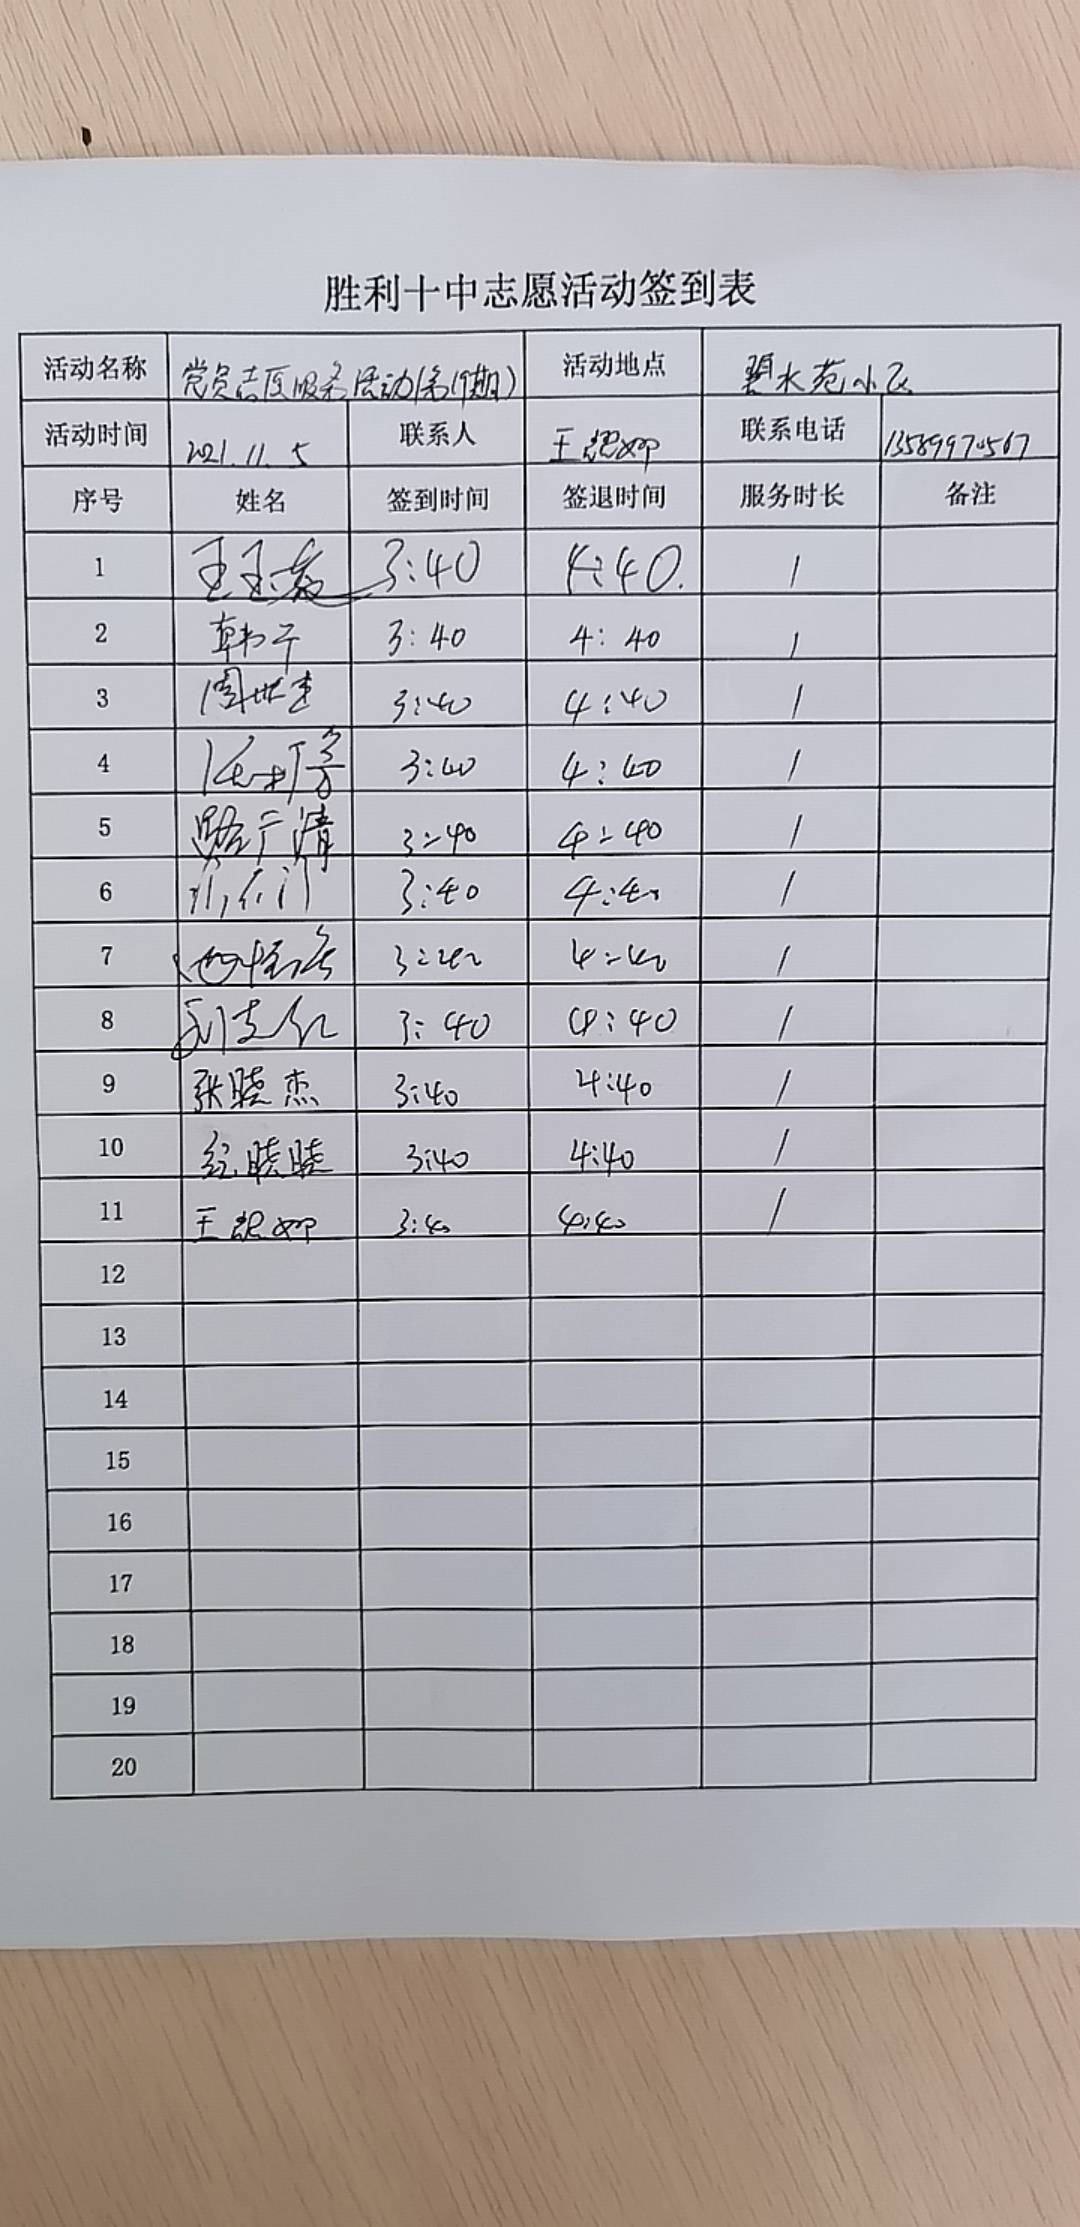 胜利十中志愿活动签到表
活动名称 党员志愿服务活动(第19期) 活动地点 碧水苑小区
活动时间 2021.11.5 联系人 王 联系电话 13589970567
序号 姓名 签到时间 签退时间 服务时长 备注
1 王玉 3:40 4:40. 1
2 韩宁 3:40 4:40 1
3 周世 3:40 4:40 1
4 任 3:40 4:40 1
5 路广清 3:40 4:40 1
6 3:40 4:40 1
7 3:40 4:40 1
8 3:40 4:40 1
9 张晓杰 3:40 4:40 1
10 纪晓晓 3:40 4:40 1
11 王 3:40 4:40 1
12
13
14
15
16
17
18
19
20